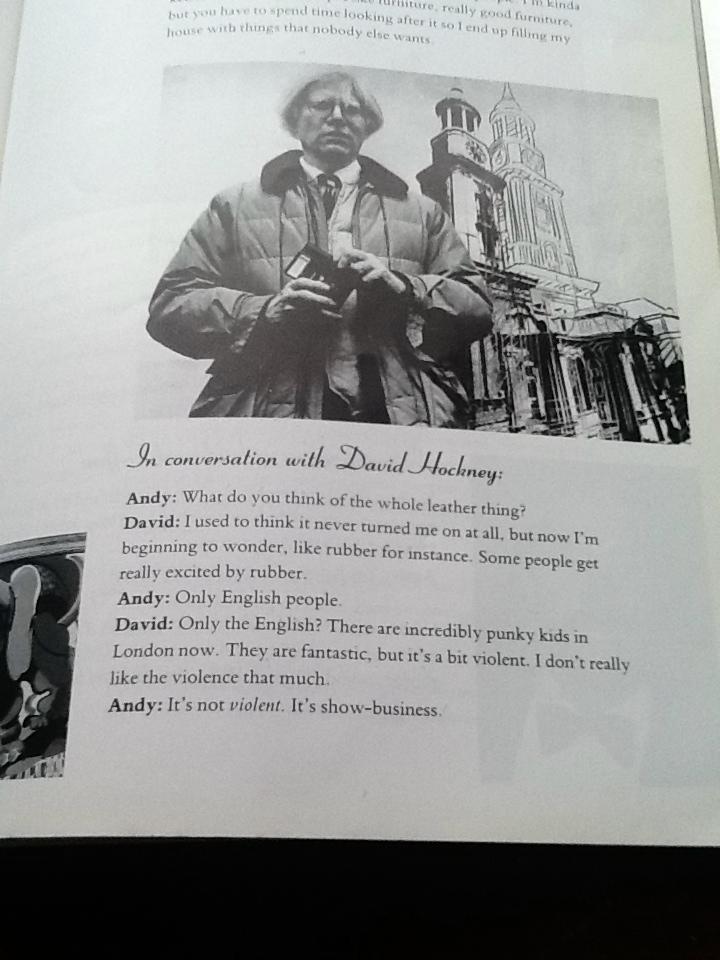 furniture, really good furniture,
but you have to spend time looking after it so I end up filling my
house with things that nobody else wants.
In conversation with David Hockney:
Andy: What do you think of the whole leather thing?
David: I used to think it never turned me on at all, but now I'm
beginning to wonder, like rubber for instance. Some people get
really excited by rubber.
Andy: Only English people.
David: Only the English? There are incredibly punky kids in
London now. They are fantastic, but it's a bit violent. I don't really
like the violence that much.
Andy: It's not violent. It's show-business.